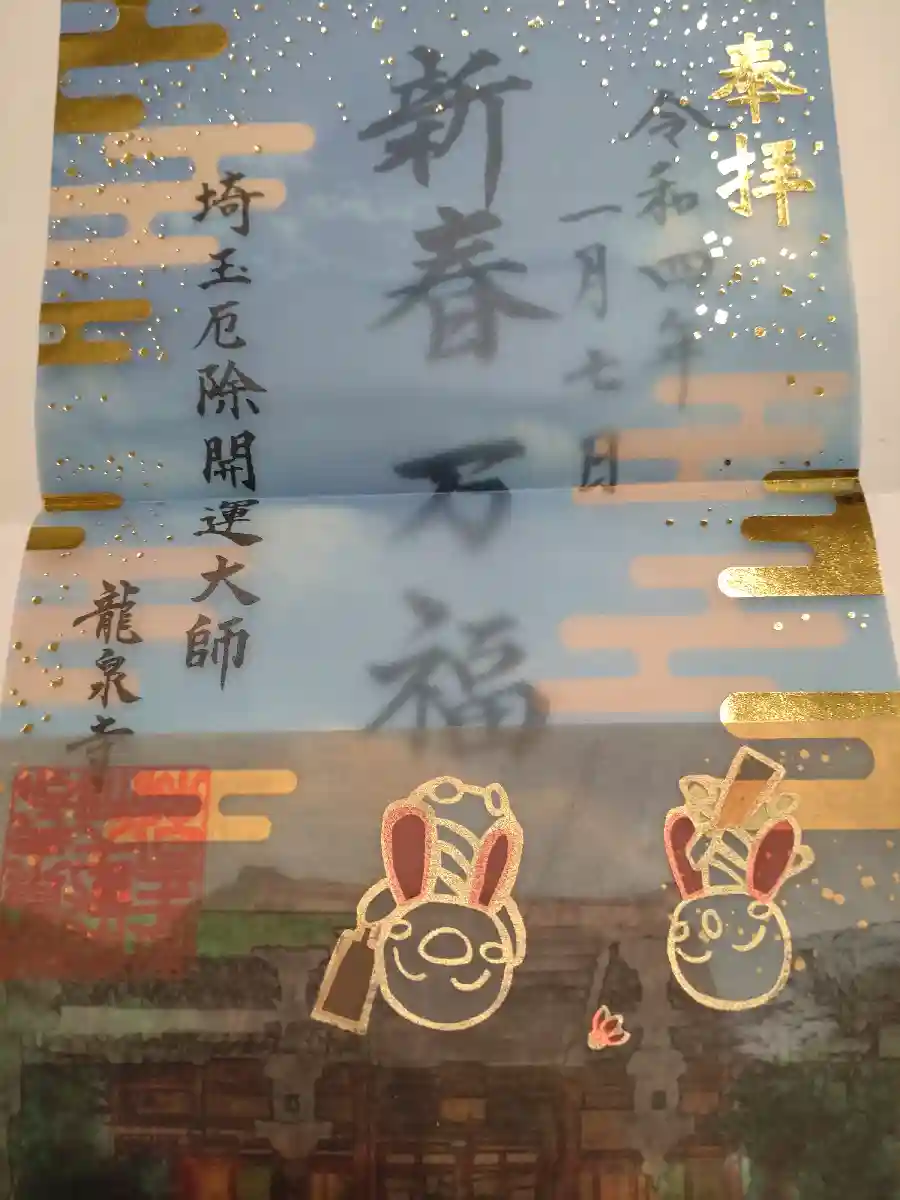 奉拝
令和四年
一月七日
新春万福
埼玉厄除開運大師
龍泉寺